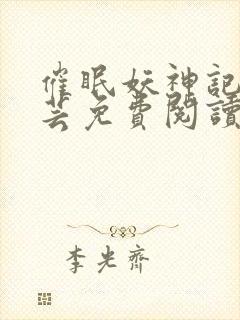 催眠妖神記
芸免費閱讀
李光齊